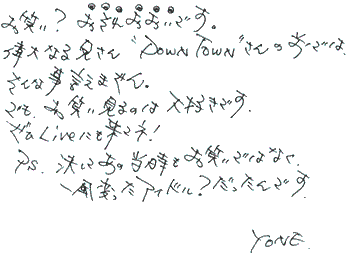 お笑い? おそれおおいです。
偉大なる兄さん "DOWN TOWN"さんの前では
そんな事言えません。
でも お笑い見るのは 大好きです。
ぜひLiveにも来てネ!
P.S. 決してあの当時もお笑いではなく、
一風変ったアイドル?だったんです。
YONE.